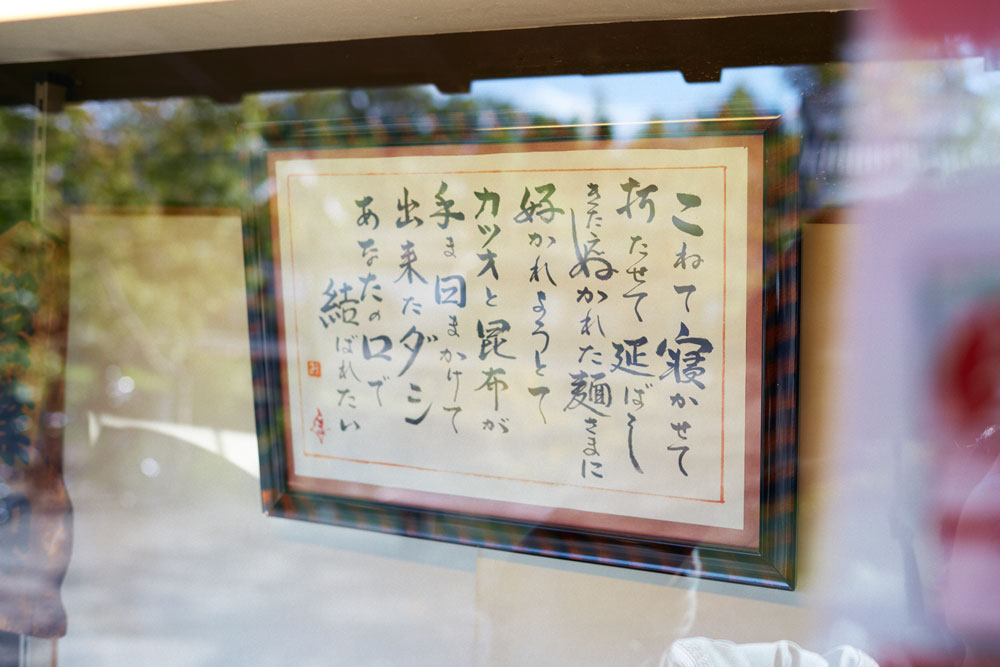 こねて寝かせて
折たせて延ばし
きたえぬかれた麺さまに
好かれようとて
カツオと昆布が
手ま日まかけて
出来たダシ
あなたの口で
結ばれたい